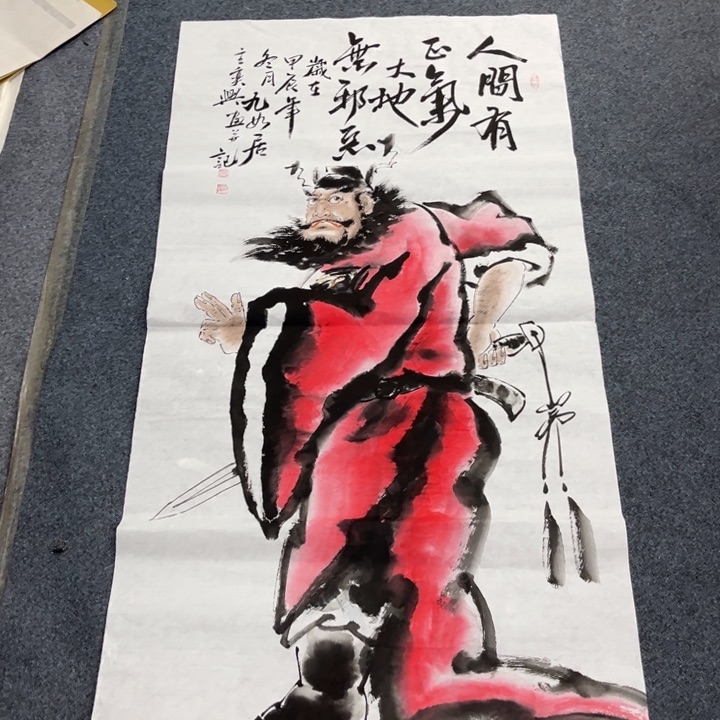 人間有
正氣
大地
無邪惡
歲在
甲辰年
冬月九如居
興画并記